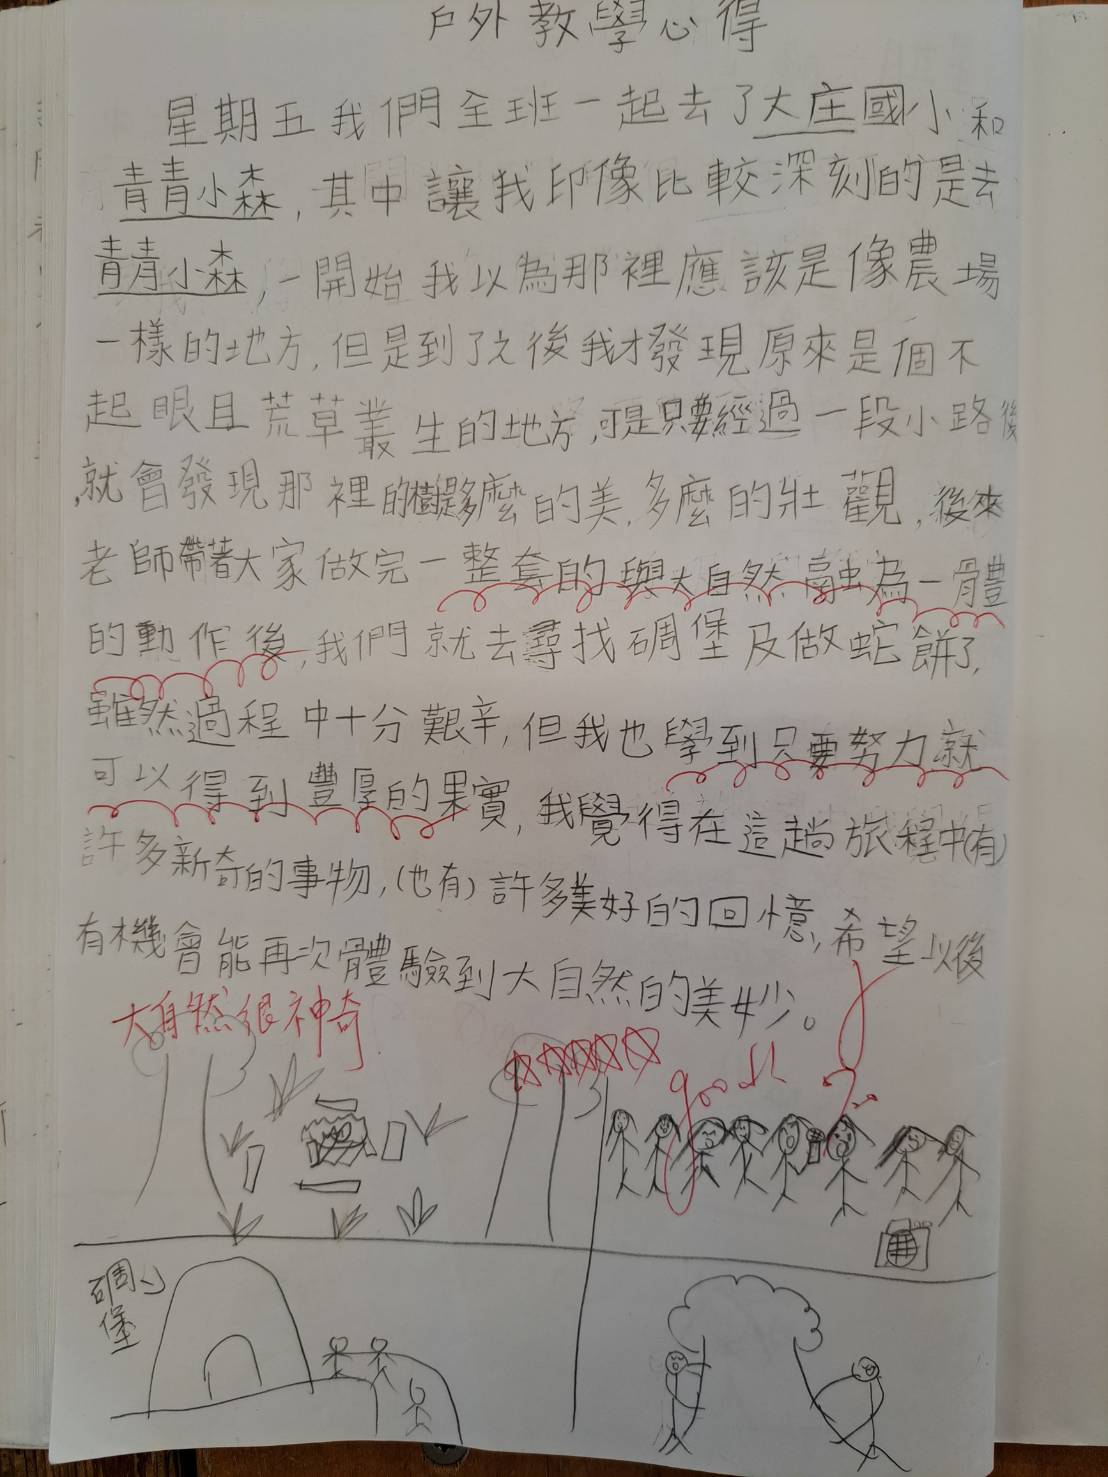 戶外教學心得
星期五我們全班一起去了大庄國小和
青青小森，其中讓我印像比較深刻的是去
青青小森，一開始我以為那裡應該是像農場
一樣的地方，但是到了之後我才發現原來是個不
起眼且荒草叢生的地方，可是只要經過一段小路後
，就會發現那裡的樹是多麼的美，多麼的壯觀，後來
老師帶著大家做完一整套的與大自然融為一體
的動作後，我們就去尋找碉堡及做蛇餅了，
雖然過程中十分艱辛，但我也學到只要努力就
可以得到豐厚的果實，我覺得在這趟旅程中(有)
許多新奇的事物，(也有)許多美好的回憶，希望以後
有機會能再次體驗到大自然的美妙。
大自然很神奇
good
碉堡